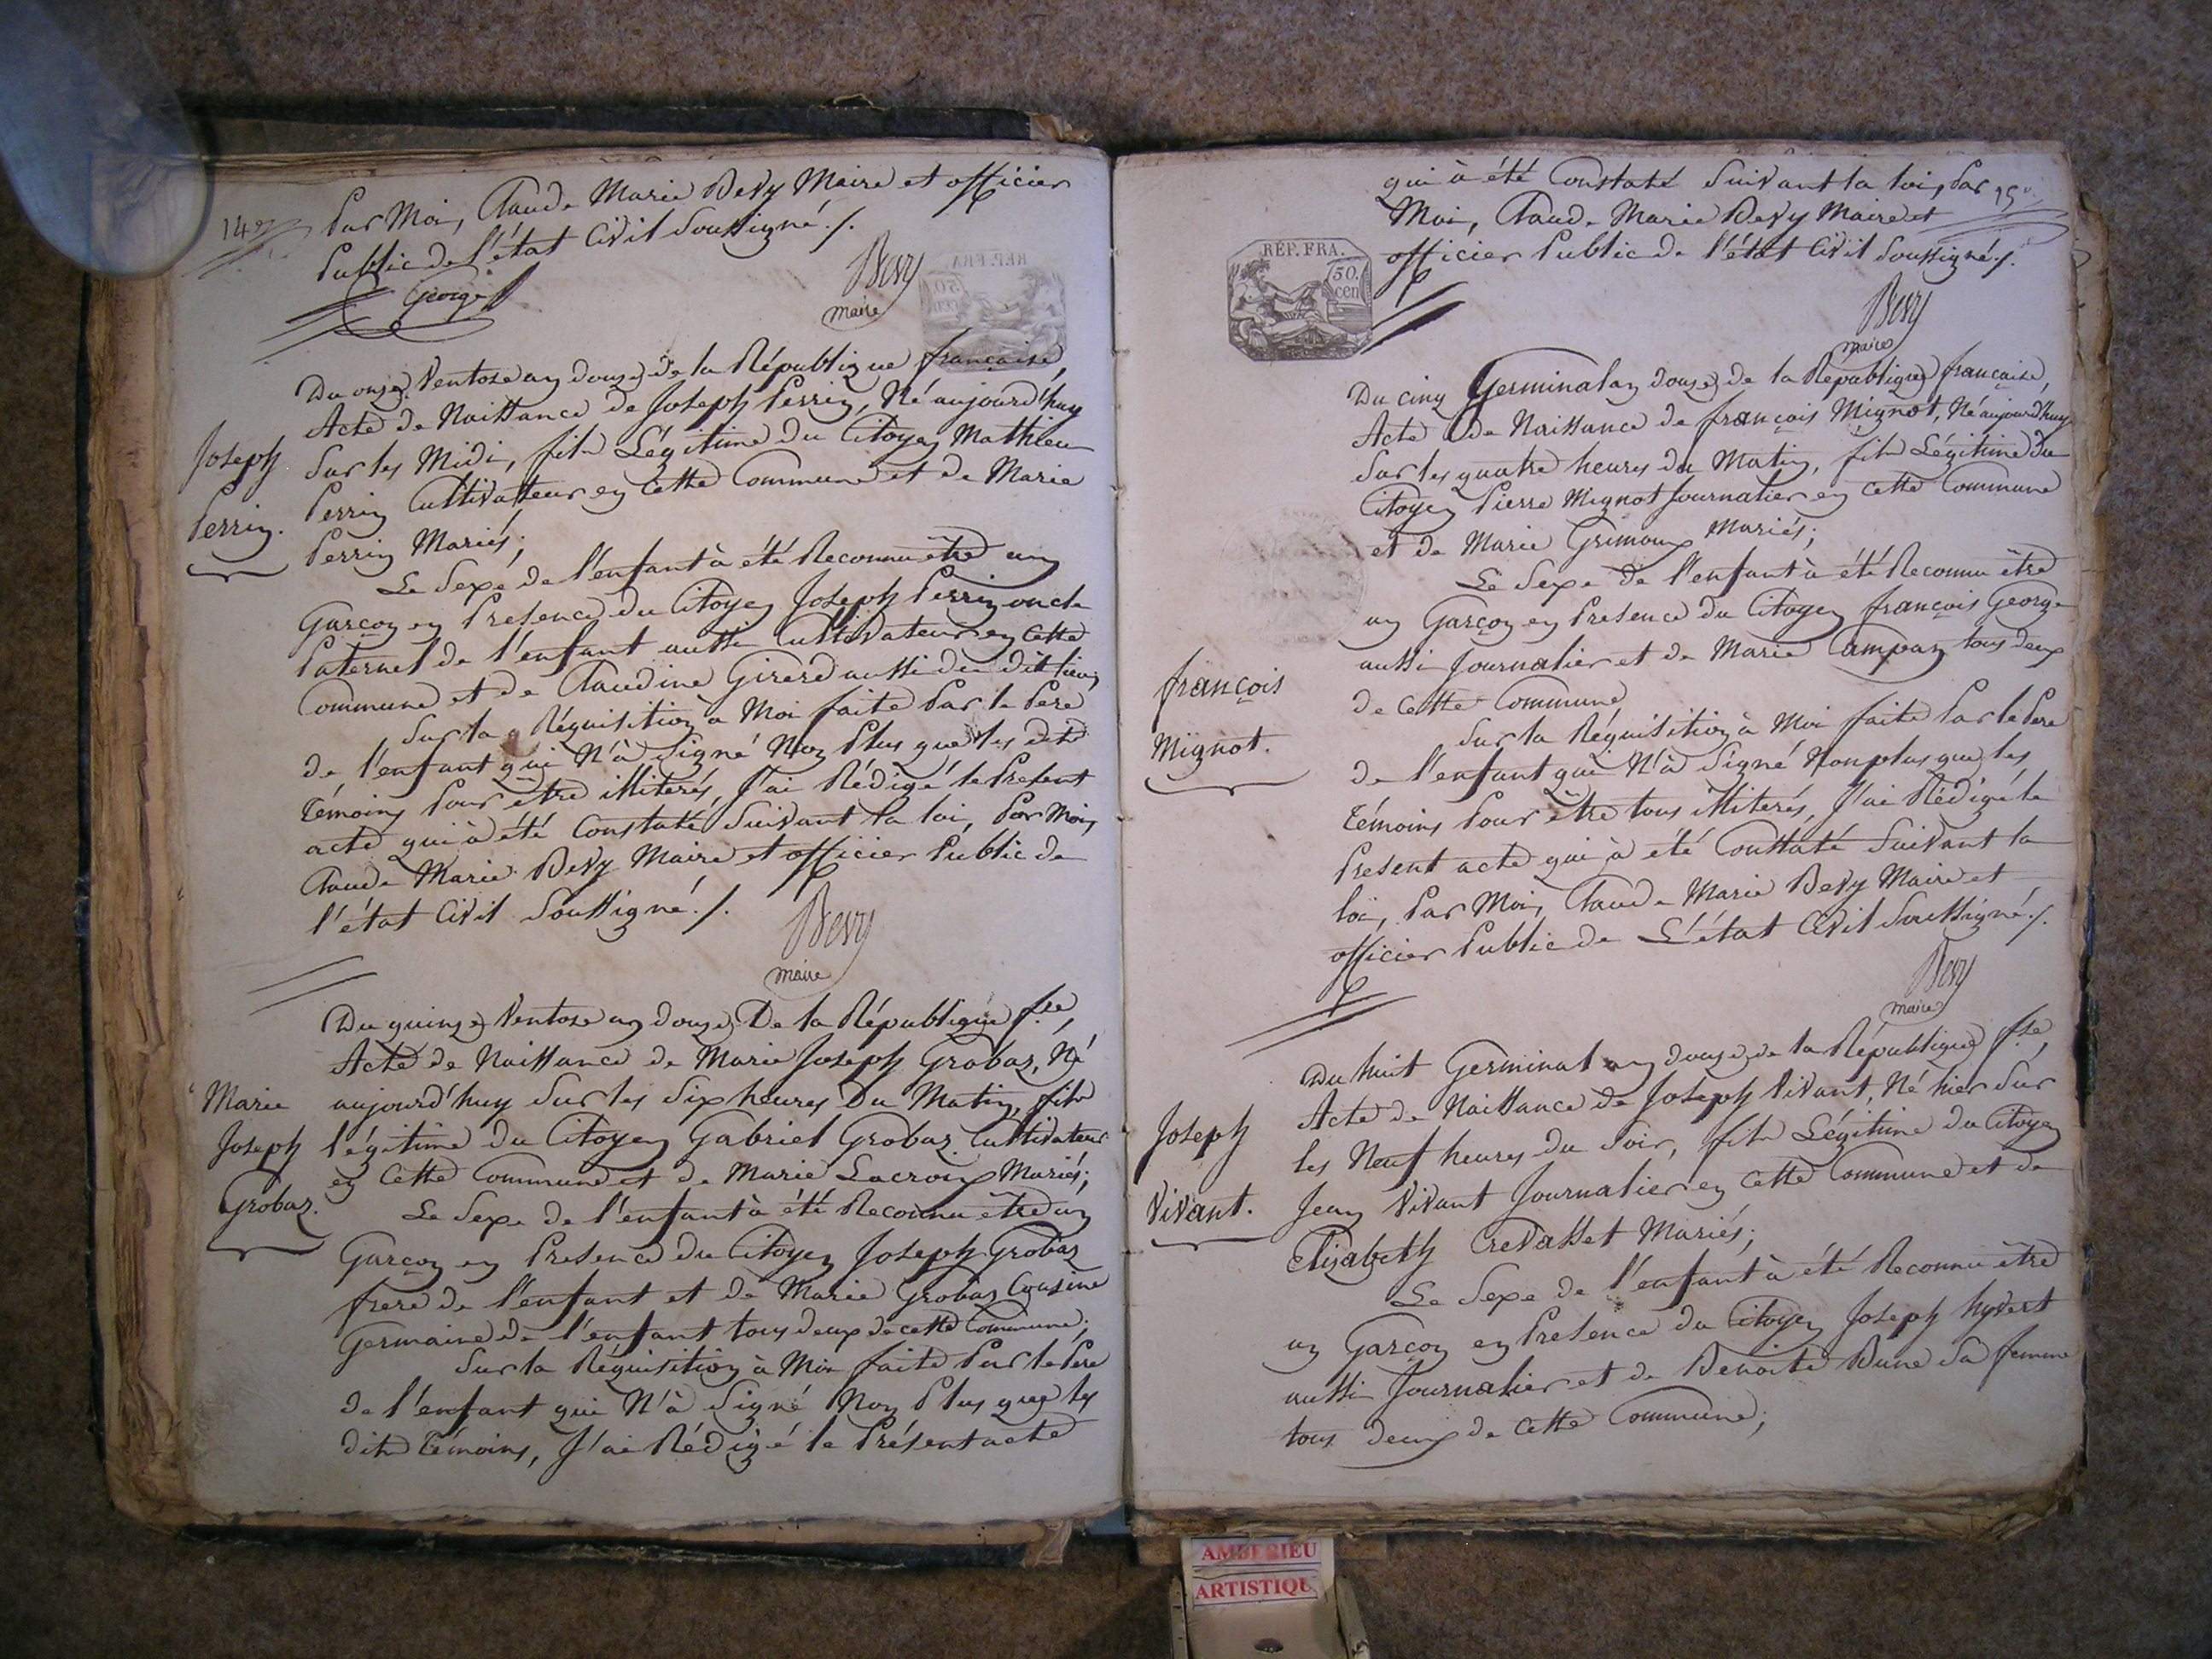 14e
Par Moi, Claude Marie Devy Maire et officier
Public de l'état Civil Soussigné ./.
George
Devy
maire
Du onze Ventose an douze de la République française,
Acte de Naissance de Joseph Perrin, Né aujourd'huy
Joseph
Perrin.
Sur les Midi, fils Légitime du Citoyen Mathieu
Perrin Cultivateur en Cette Commune et de Marie
Perrin Mariés;
Le Sexe de l'enfant à été Reconnu être un
Garçon en Présence du Citoyen Joseph Perrin oncle
Paternel de l'enfant aussi Cultivateur en Cette
Commune et de Claudine Girerd aussi du dit lieu,
Sur la Réquisition à Moi faite Par le Pere
de l'enfant qui N'à Signé Non Plus que les dits
témoins Pour être illiterés, J'ai Rédigé le Présent
acte qui à été Constaté Suivant la loi, Par Moi,
Claude Marie Devy Maire et officier Public de
l'état Civil Soussigné ./.
Devy
maire
Du quinze Ventose an douze De la République fse,
Acte de Naissance de Marie Joseph Grobas, Né
Marie
Joseph
Grobas.
aujourd'huy Sur les Six heures Du Matin, fils
légitime du Citoyen Gabriel Grobas Cultivateur
en Cette Commune et de Marie Lacroix Mariés;
Le Sexe de l'enfant à été Reconnu être un
Garçon en Présence du Citoyen Joseph Grobas
frere de l'enfant et de Marie Grobas Cousine
Germaine de l'enfant tous deux de cette Commune;
Sur la Réquisition à Moi faite Par le Pere
de l'enfant qui N'à Signé Non Plus que les
dits témoins, J'ai Rédigé le Présent acte
15e
qui à été Constaté Suivant la loi, Par
Moi, Claude Marie Devy Maire et
officier Public de l'état Civil Soussigné ./.
RÉP. FRA.
50.
cen
Devy
maire
Du cinq Germinal an douze de la République française,
Acte de Naissance de françois Mignot, Né aujourd'huy
Sur les quatre heures du Matin, fils Légitime du
Citoyen Pierre Mignot Journalier en cette Commune
et de Marie Grimoux Mariés;
Le Sexe de l'enfant à été Reconnu être
un Garçon en Présence du Citoyen françois George
aussi Journalier et de Marie Campan tous deux
de Cette Commune
françois
Mignot.
Sur la Réquisition à Moi faite Par le Pere
de l'enfant qui N'à Signé Non plus que les
témoins Pour être tous illiterés, J'ai Rédigé le
Présent acte qui à été Constaté Suivant la
loi, Par Moi, Claude Marie Devy Maire et
officier Public de L'état Civil Soussigné ./.
Devy
maire
Du huit Germinal an douze de la République fse,
Acte de Naissance de Joseph Vivant, Né hier Sur
Joseph
Vivant.
les Neuf heures du Soir, fils Légitime du Citoyen
Jean Vivant Journalier en Cette Commune et de
Elisabeth Crevasset Mariés;
Le Sexe de l'enfant à été Reconnu être
un Garçon en Présence du Citoyen Joseph hyvert
aussi Journalier et de Benoite Bune Sa femme
tous deux de Cette Commune;
AMBERIEU
ARTISTIQU